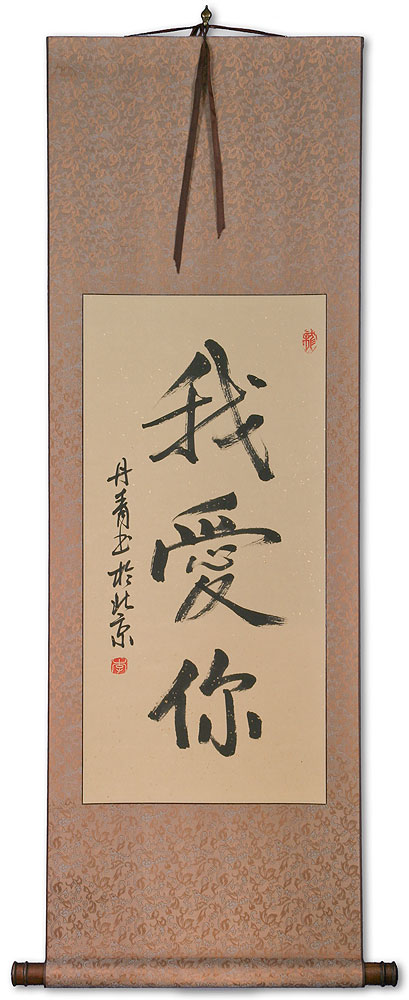 我愛你
丹青书於北京
李